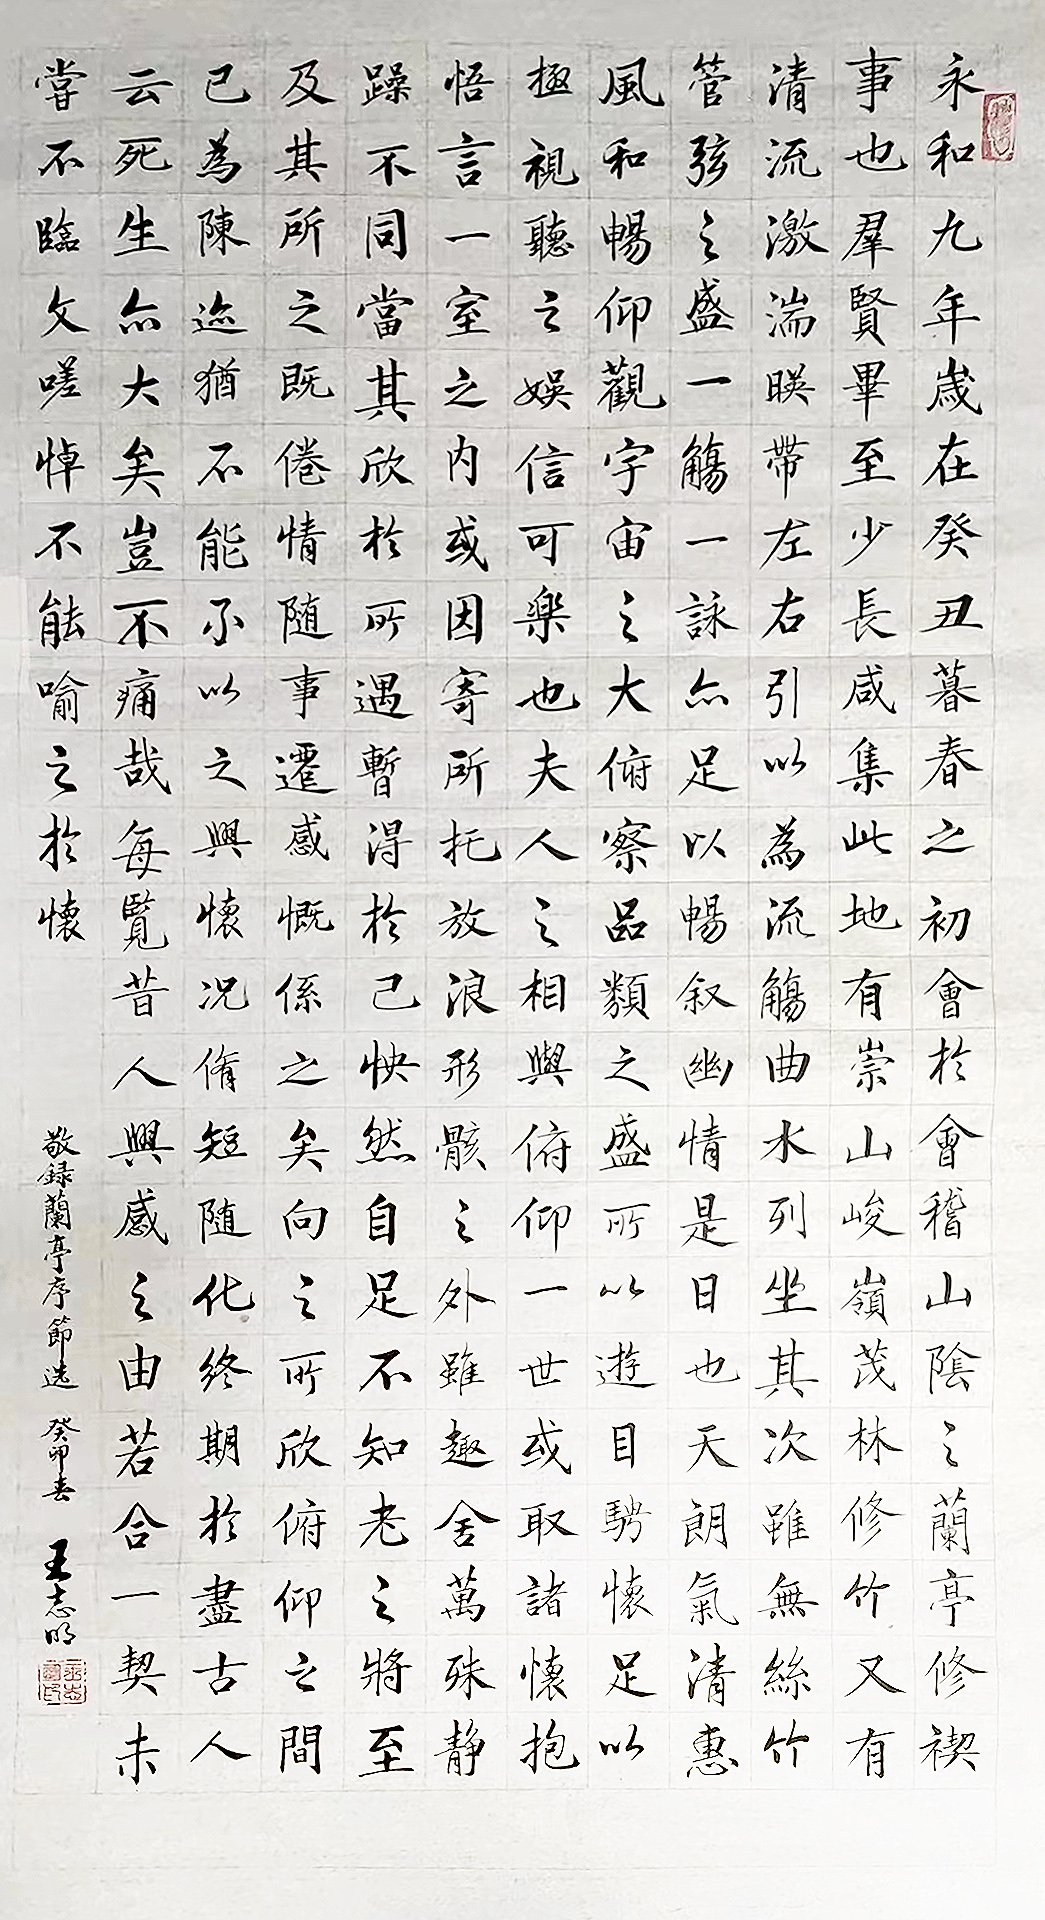 永和九年歲在癸丑暮春之初會於會稽山陰之蘭亭修禊
事也群賢畢至少長咸集此地有崇山峻嶺茂林修竹又有
清流激湍暎帶左右引以為流觴曲水列坐其次雖無絲竹
管弦之盛一觴一詠亦足以暢叙幽情是日也天朗氣清惠
風和暢仰觀宇宙之大俯察品類之盛所以遊目騁懷足以
極視聽之娛信可樂也夫人之相與俯仰一世或取諸懷抱
悟言一室之内或因寄所托放浪形骸之外雖趣舍萬殊静
躁不同當其欣於所遇暫得於己怏然自足不知老之將至
及其所之既倦情随事遷感慨係之矣向之所欣俯仰之間
已為陳迹猶不能不以之興懷况脩短随化終期於盡古人
云死生亦大矣豈不痛哉每覽昔人興感之由若合一契未
嘗不臨文嗟悼不能喻之於懷
敬録蘭亭序節选 癸卯春 王志明